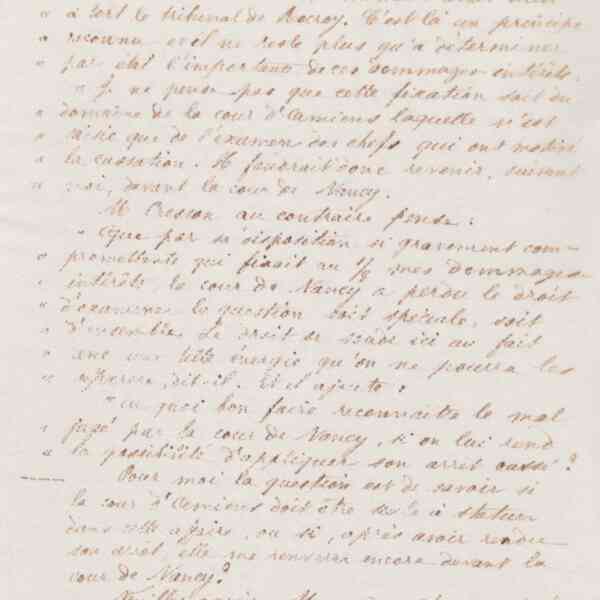 " à tort le tribunal de Rocroy. C'est là un principe
" reconnu et il ne reste plus qu'à déterminer
" par état l'importance de ces dommages intérêts.
" Je ne pense pas que cette fixation soit du
" domaine de la cour d'Amiens laquelle n'est
" saisie que de l'examen des chefs qui ont motivé
" la cassation. Il faudrait donc revenir, suivant
" moi, devant la cour de Nancy.
M. Cresson au contraire pense :
" Que par sa disposition si gravement com-
" promettante qui fixait au 1/8 mes dommages
" intérêts, la cour de Nancy a perdu le droit
" d'examiner la question soit spéciale, soit
" d'ensemble. Le droit se ici au fait
" avec une telle énergie qu'on ne pourra les
" dit-il. Et il ajoute :
" à quoi bon faire reconnaître le mal
" jugé par la cour de Nancy, si on lui rend
" la possibilité d'appliquer son arrêt cassé ?
Pour moi la question est de savoir si
la cour d'Amiens doit être seule à statuer
dans cette affaire, ou si, après avoir rendu
son arrêt, elle me renverra encore devant la
cour de Nancy ?